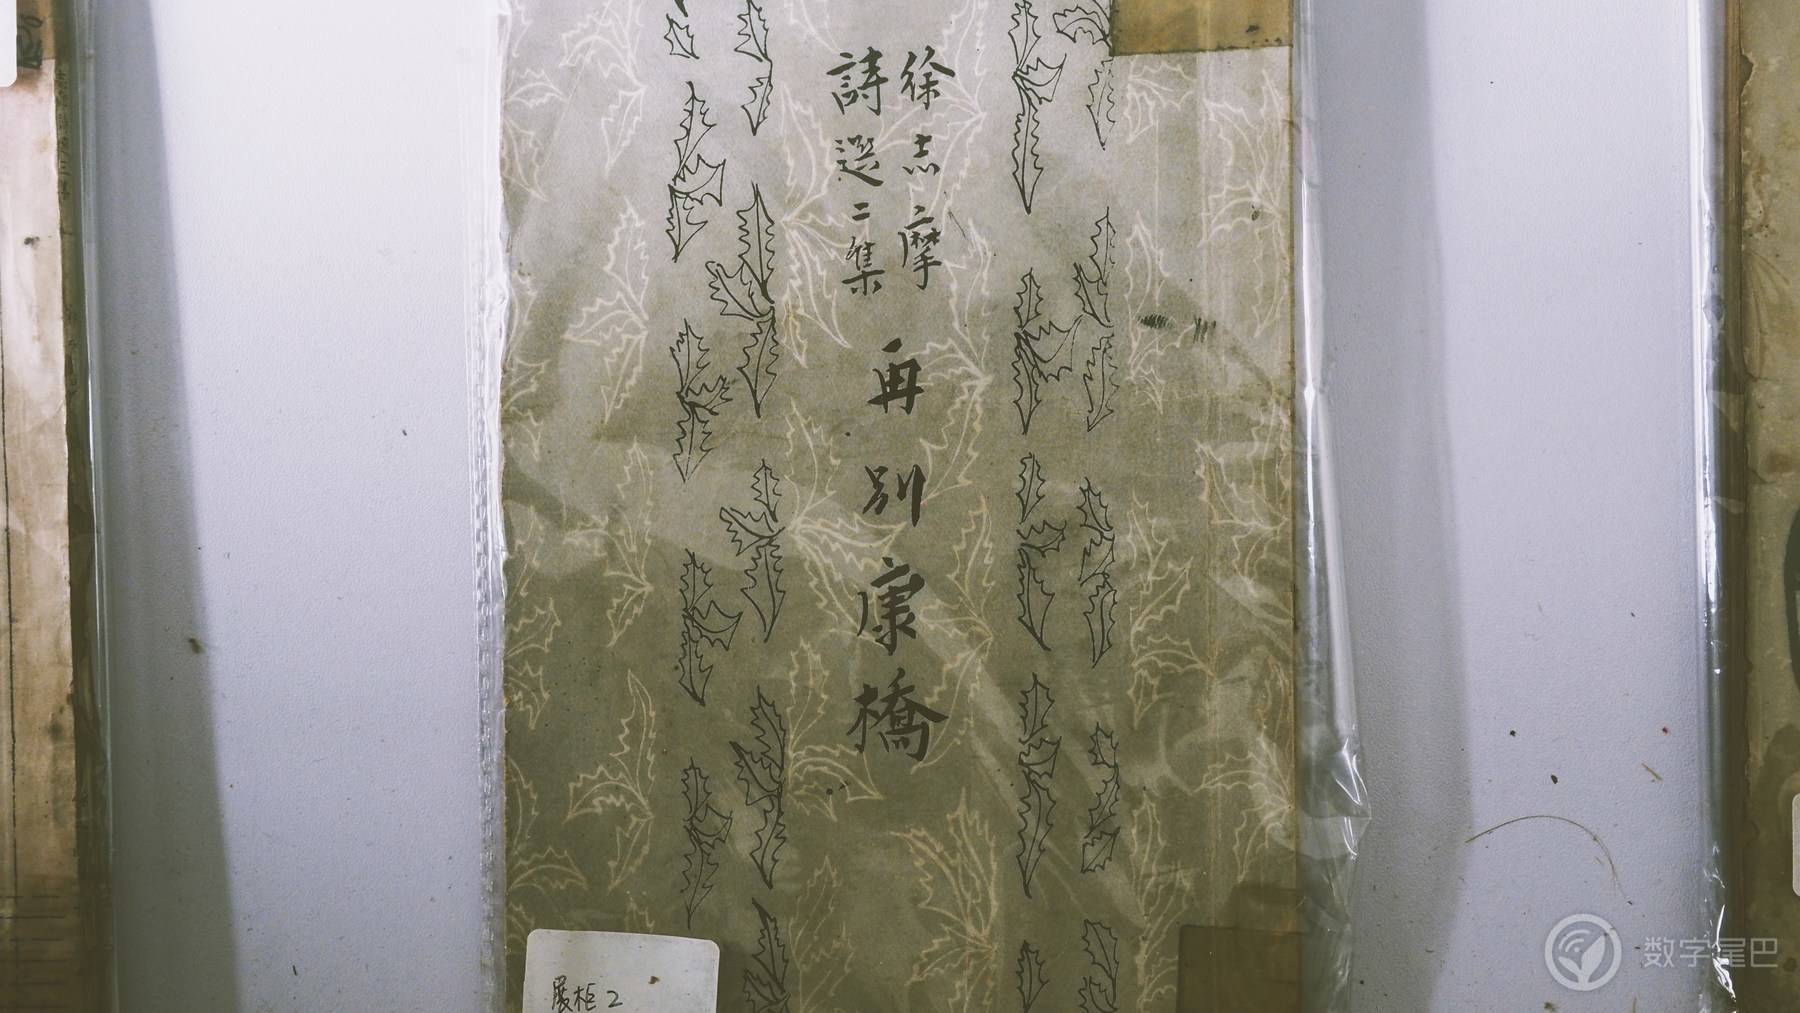 徐志摩
詩選二集
再別康橋
展柜2
数字尾巴